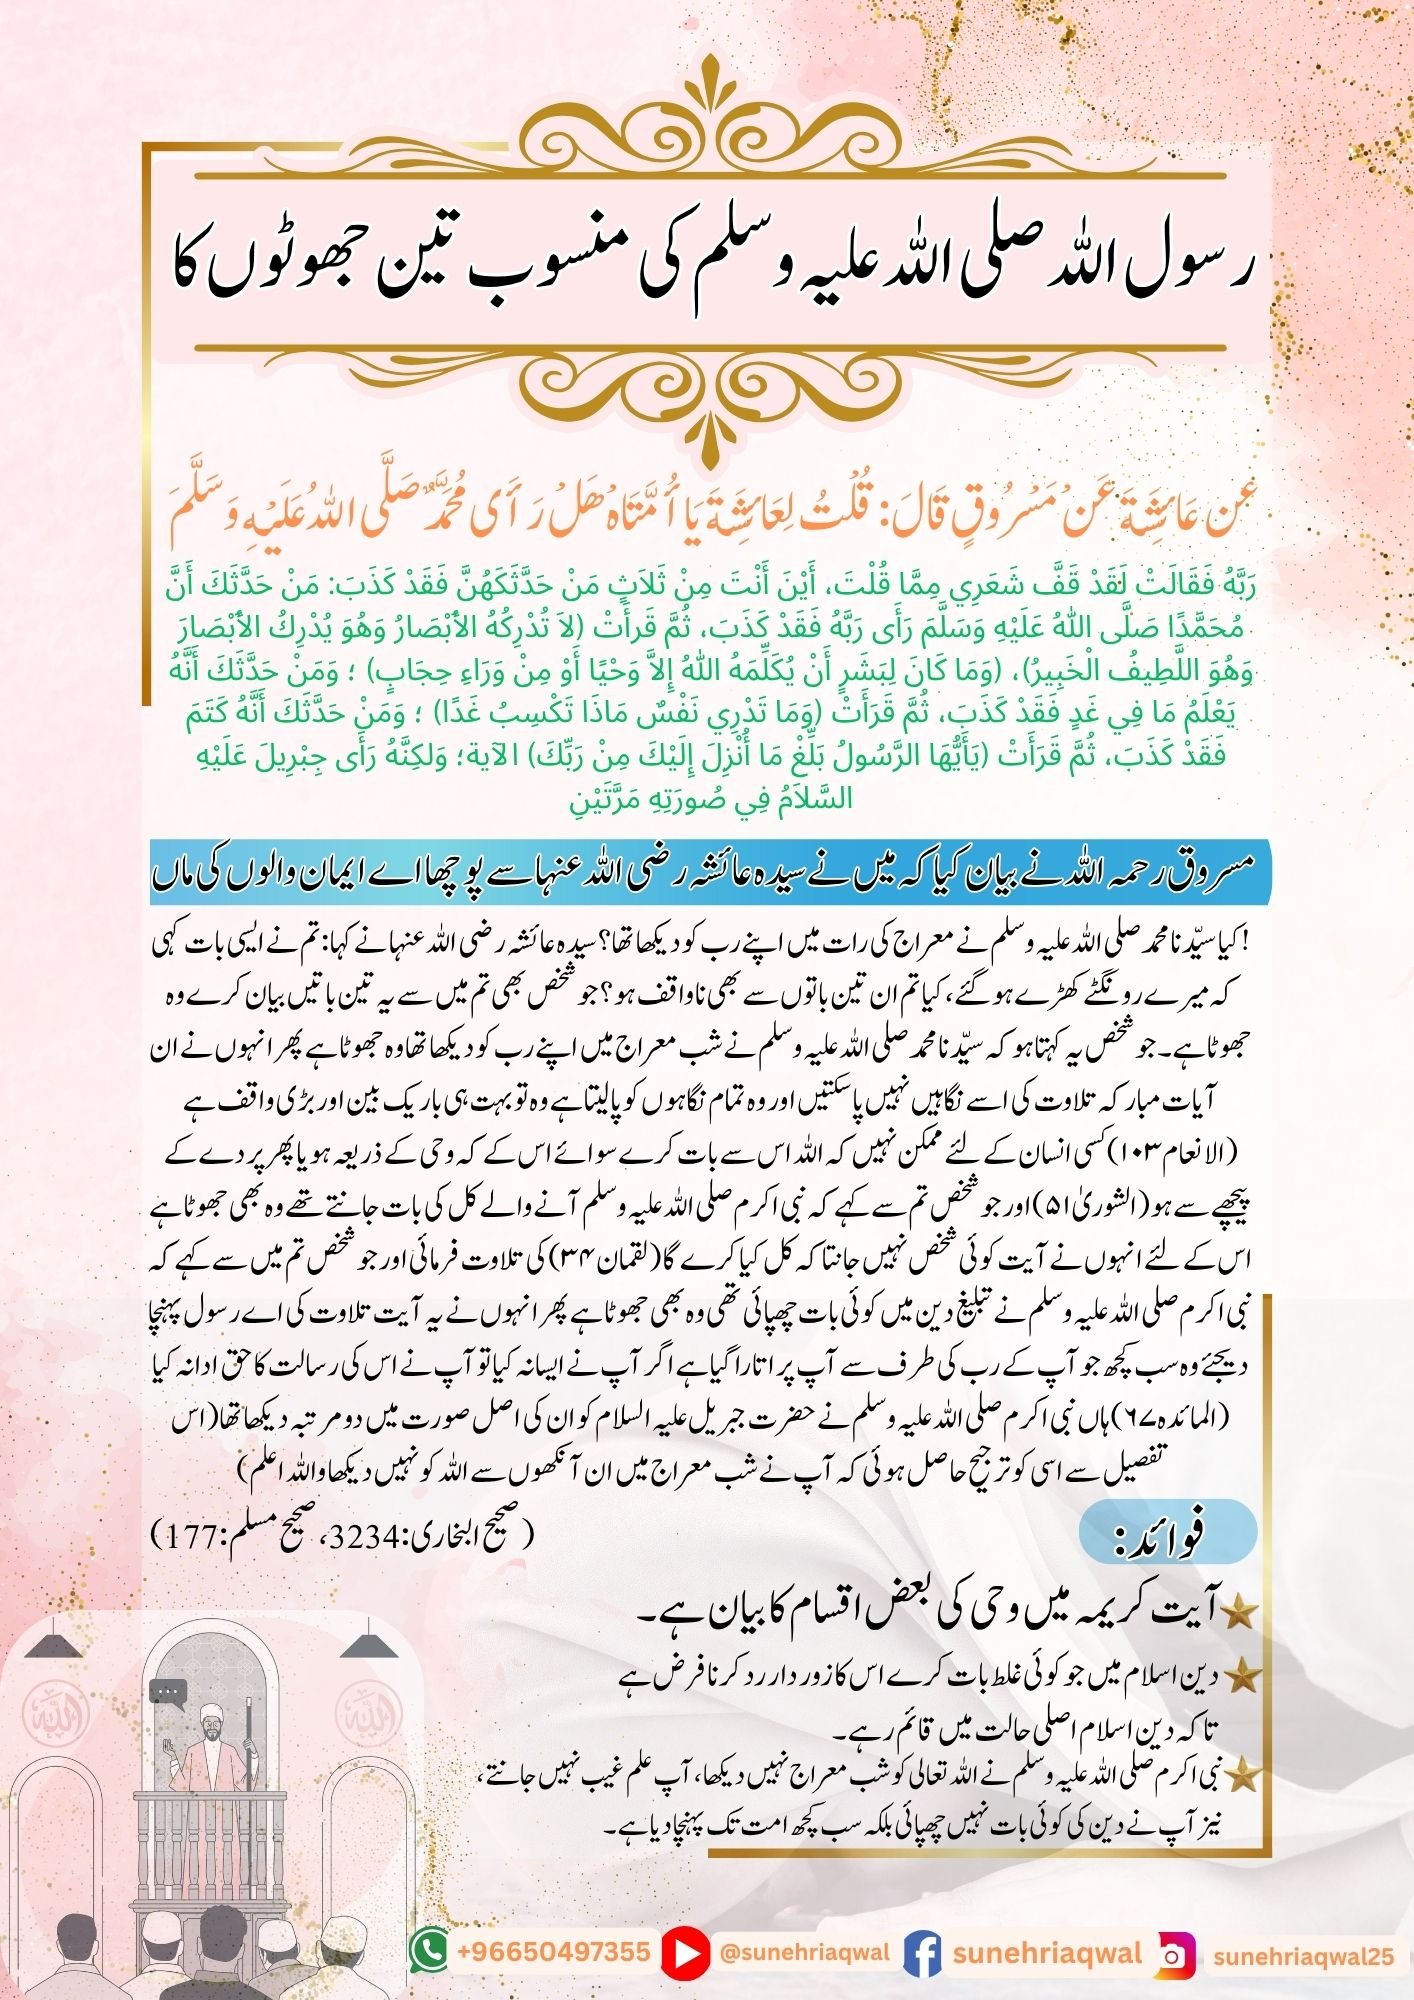 رسول اللہ صلی اللہ علیہ وسلم کی منسوب تین جھوٹوں کا
عَنْ عَائِشَةَ عَنْ مَسْرُوقٍ قَالَ: قُلْتُ لِعَائِشَةَ يَا أُمَّتَاهْ هَلْ رَأَى مُحَمَّدٌ صَلَّى اللهُ عَلَيْهِ وَسَلَّمَ
رَبَّهُ فَقَالَتْ لَقَدْ قَفَّ شَعَرِي مِمَّا قُلْتَ، أَيْنَ أَنْتَ مِنْ ثَلَاثٍ مَنْ حَدَّثَكَهُنَّ فَقَدْ كَذَبَ: مَنْ حَدَّثَكَ أَنَّ
مُحَمَّدًا صَلَّى اللهُ عَلَيْهِ وَسَلَّمَ رَأَى رَبَّهُ فَقَدْ كَذَبَ، ثُمَّ قَرأَتْ (لاَ تُدْرِكُهُ الأَبْصَارُ وَهُوَ يُدْرِكُ الأَبْصَارَ
وَهُوَ اللَّطِيفُ الْخَبِيرُ)، (وَمَا كَانَ لِبَشَرٍ أَنْ يُكَلِّمَهُ اللهُ إِلاَّ وَحْيًا أَوْ مِنْ وَرَاءِ حِجَابٍ) ؛ وَمَنْ حَدَّثَكَ أَنَّهُ
يَعْلَمُ مَا فِي غَدٍ فَقَدْ كَذَبَ، ثُمَّ قَرَأَتْ (وَمَا تَدْرِي نَفْسٌ مَاذَا تَكْسِبُ غَدًا) ؛ وَمَنْ حَدَّثَكَ أَنَّهُ كَتَمَ
فَقَدْ كَذَبَ، ثُمَّ قَرَأَتْ (يَأَيُّهَا الرَّسُولُ بَلِّغْ مَا أُنْزِلَ إِلَيْكَ مِنْ رَبِّكَ) الآية؛ وَلكِنَّهُ رَأَى جِبْرِيلَ عَلَيْهِ
السَّلاَمُ فِي صُورَتِهِ مَرَّتَيْنِ
مسروق رحمہ اللہ نے بیان کیا کہ میں نے سیدہ عائشہ رضی اللہ عنہا سے پوچھا اے ایمان والوں کی ماں
! کیا سیّدنا محمد صلی اللہ علیہ وسلم نے معراج کی رات میں اپنے رب کو دیکھا تھا؟ سیدہ عائشہ رضی اللہ عنہا نے کہا: تم نے ایسی بات کہی
کہ میرے رونگٹے کھڑے ہو گئے، کیا تم ان تین باتوں سے بھی ناواقف ہو؟ جو شخص بھی تم میں سے یہ تین باتیں بیان کرے وہ
جھوٹا ہے۔ جو شخص یہ کہتا ہو کہ سیّدنا محمد صلی اللہ علیہ وسلم نے شب معراج میں اپنے رب کو دیکھا تھا وہ جھوٹا ہے پھر انہوں نے ان
آیات مبارکہ تلاوت کی اسے نگاہیں نہیں پا سکتیں اور وہ تمام نگاہوں کو پا لیتا ہے وہ تو بہت ہی باریک بین اور بڑی واقف ہے
(الانعام ۱۰۳) کسی انسان کے لئے ممکن نہیں کہ اللہ اس سے بات کرے سوائے اس کے کہ وحی کے ذریعہ ہو یا پھر پردے کے
پیچھے سے ہو (الشوریٰ ۵۱) اور جو شخص تم سے کہے کہ نبی اکرم صلی اللہ علیہ وسلم آنے والے کل کی بات جانتے تھے وہ بھی جھوٹا ہے
اس کے لئے انہوں نے آیت کوئی شخص نہیں جانتا کہ کل کیا کرے گا (لقمان ۳۴) کی تلاوت فرمائی اور جو شخص تم میں سے کہے کہ
نبی اکرم صلی اللہ علیہ وسلم نے تبلیغ دین میں کوئی بات چھپائی تھی وہ بھی جھوٹا ہے پھر انہوں نے یہ آیت تلاوت کی اے رسول پہنچا
دیجئے وہ سب کچھ جو آپ کے رب کی طرف سے آپ پر اتارا گیا ہے اگر آپ نے ایسا نہ کیا تو آپ نے اس کی رسالت کا حق ادا نہ کیا
(المائدہ ۶۷) ہاں نبی اکرم صلی اللہ علیہ وسلم نے حضرت جبریل علیہ السلام کو ان کی اصل صورت میں دو مرتبہ دیکھا تھا (اس
تفصیل سے اسی کو ترجیح حاصل ہوئی کہ آپ نے شب معراج میں ان آنکھوں سے اللہ کو نہیں دیکھا واللہ اعلم)
(صحیح البخاری: 3234، صحیح مسلم: 177)
فوائد:
آیت کریمہ میں وحی کی بعض اقسام کا بیان ہے۔
دین اسلام میں جو کوئی غلط بات کرے اس کا زوردار رد کرنا فرض ہے
تاکہ دین اسلام اصلی حالت میں قائم رہے۔
نبی اکرم صلی اللہ علیہ وسلم نے اللہ تعالی کو شب معراج نہیں دیکھا، آپ علم غیب نہیں جانتے،
نیز آپ نے دین کی کوئی بات نہیں چھپائی بلکہ سب کچھ امت تک پہنچا دیا ہے۔
الله
الله
+96650497355 @sunehriaqwal sunehriaqwal sunehriaqwal25